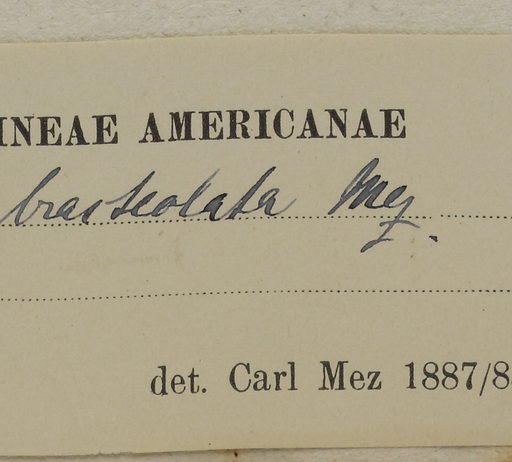 INEAE AMERICANAE
bracteolata Mez.
det. Carl Mez 1887/8